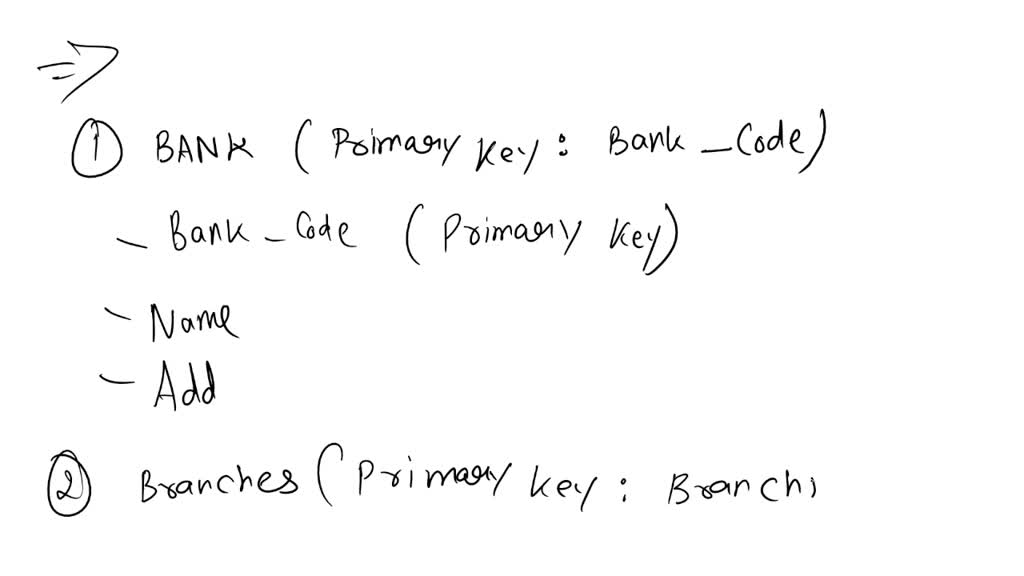 ⇒
① BANK (Primary Key: Bank_Code)
- Bank_Code (Primary Key)
- Name
- Add
② Branches (Primary Key: Branch